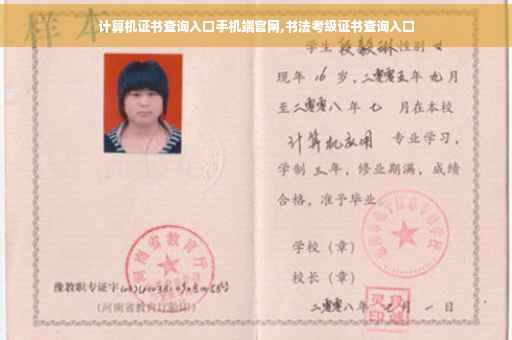 计算机证书查询入口手机端官网,书法考级证书查询入口
样本
学生段毅琳性别女
现年16岁,二零零五年九月
至二零零八年七月在本校
计算机应用 专业学习,
学制三年,修业期满,成绩
合格,准予毕业
学校(章)
校长(章)
二零零八年 月一日
河南省教育厅
豫教职专证字
(河南省教育厅验印)